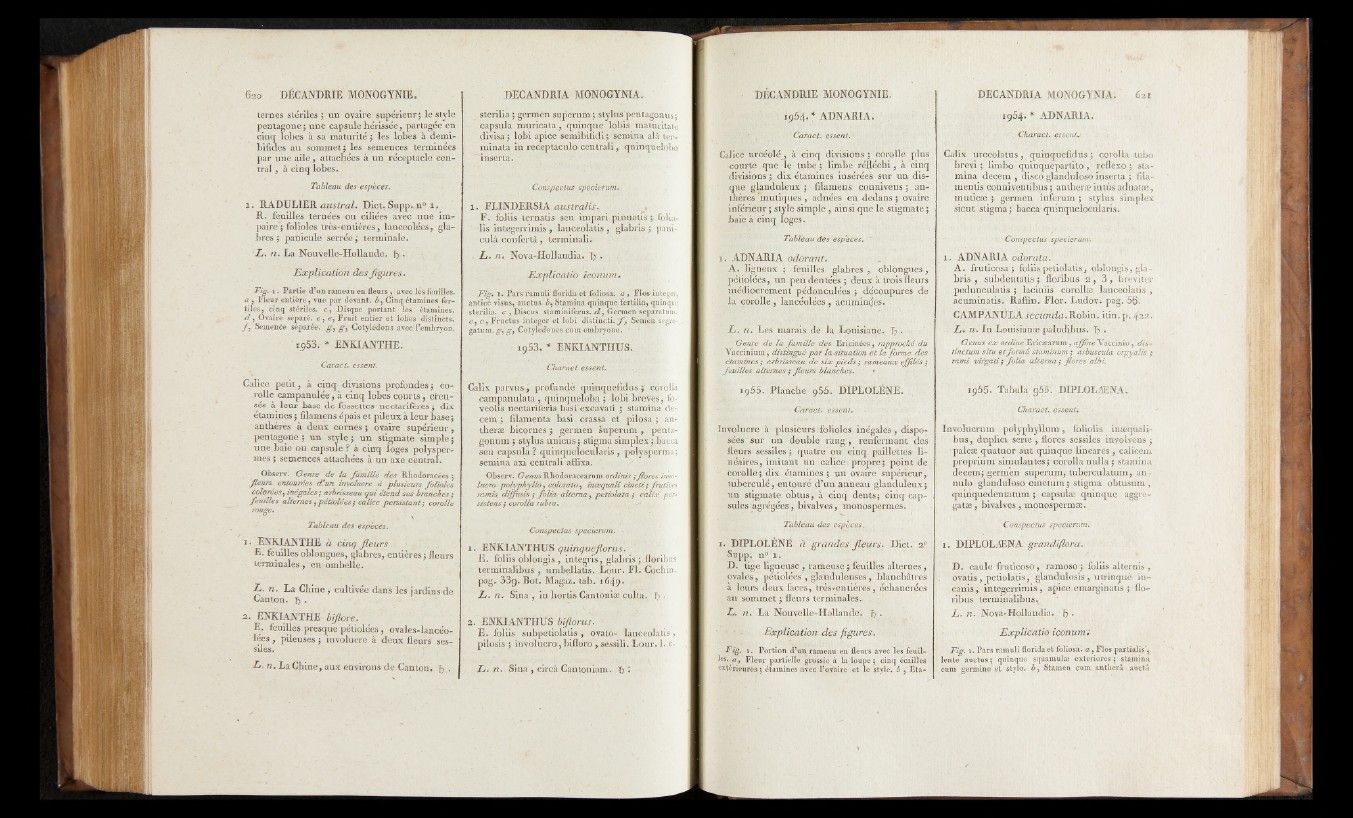 620 DÉCANDRIE MONOGYNIE.
ternes stériles ; un ovaire supérieur; le style
pentagone; une capsule hérissée, partagée en
cinq lobes à sa maturité ; les lobes à demi-
bifides au sommet ; les semences terminées
par une aile, attachées à un réceptacle cen-
tral, à cinq lobes.
Tableau des espèces.
1. RADULIER austral. Dict. Supp. n° 1.
R. feuilles ternées ou ciliées avec une im-
paire ; folioles très-entières, lanceolées, gla-
bres ; panicule serrée ; terminale.
L. n. La Nouvelle-Hollande. ♄.
Explication des figures.
Fig. 1. Partie d'un rameau en fleurs, avec les feuilles.
a, Fleur entière, vue par devant. b, Cinq étamines fer-
tiles, cinq stériles. c, Disque portant les étamines.
d, Ovaire séparé. e, e, Fruit entier et lobes distincts.
f, Semence séparée. g, g, Cotylédons avec l'embryon.
1953. * ENKIANTHE.
Caract. essent.
Calice petit, à cinq divisions profondes ; co-
rolle campanulée, à cinq lobes courts, creu-
sée à leur base de fossettes nectarifères, dix
étamines ; filamens épais et pileux à leur base;
anthères à deux cornes ; ovaire supérieur,
pentagone ; un style ; un stigmate simple ;
une baie ou capsule ? à cinq loges polysper-
mes ; semences attachées à un axe central.
Observ. Genre de la famille des Rhodoracées ;
fleurs entourées d'un involucre à plusieurs folioles
colorées, inégales; arbrisseau qui étend ses branches ;
feuilles alternes, pétiolées; calice persistant; corolle
rouge.
Tableau des espèces.
1. ENKIANTHE à cinq fleurs.
E. feuilles oblongues, glabres, entières ; fleurs
terminales, en ombelle.
L. n. La Chine, cultivée dans les jardins de
Canton. ♄.
2. ENKIANTHE biflore.
E. feuilles presque pétiolées, ovales-lancéo-
lées, pileuses ; involucre à deux fleurs ses-
siles.
L. n. La Chine, aux environs de Canton. ♄.
DECANDRIA MONOGYNIA.
sterilia ; germen superum ; stylus pentagonus ;
capsula muricata, quinque lobis maturitate
divisa ; lobi apice semibifidi ; semina alâ ter-
minata in receptaculo centrali, quinquelobo
inserta.
Conspectus specierum.
1. FLINDERSIA australis.
F. foliis ternatis seu impari pinnatis ; folio-
lis integerrimis, lanceolatis, glabris ; pani-
culâ confertâ, terminali.
L. n. Nova-Hollandia. ♄.
Explicatio iconum.
Fig. 1. Pars ramuli florida et foliosa. a, Flos integer,
anticè visus, auctus. b, Stamina quinque fertilia, quinque
sterilia. c, Discus staminiferus. d, Germen separatum.
e, e, Fructus integer et lobi distincti. f, Semen segre-
gatum. g, g, Cotyledones cum embryone.
1953. * ENKIANTHUS.
Charact. essent.
Calix parvus, profundè quinquefidus ; corolla
campanulata, quinqueloba ; lobi breves, fo-
veolis nectariferis basi excavati ; stamina de-
cem ; filamenta basi crassa et pilosa ; an-
theræ bicornes ; germen superum, penta-
gonum ; stylus unicus ; stigma simplex ; bacca
seu capsula ? quinquelocularis, polysperma ;
semina axi centrali affixa.
Observ. Genus Rhodoracearum ordinis ; flores invo-
lucro polyphyllo, colorato, inæquali cincti ; frutices
ramis diffusis ; folia alterna, petiolata ; calix per-
sistens ; corolla rubra.
Conspectus specierum.
1. ENKIANTHUS quinqueflorus.
E. foliis oblongis, integris, glabris ; floribus
terminalibus, umbellatis. Lour. Fl. Cochin.
pag. 339. Bot. Magaz. tab. 1649.
L. n. Sina, in hortis Cantoniæ culta. ♄.
2. ENKIANTHUS biflorus.
E. foliis subpetiolatis, ovato-lanceolatis,
pilosis ; involucro, bifloro, sessili. Lour. l. c.
L. n. Sina, circà Cantoniam. ♄.
DÉCANDRIE MONOGYNIE.
1954. * ADNARIA.
Caract. essent.
Calice urcéolé, à cinq divisions ; corolle plus
courte que le tube ; limbe réfléchi, à cinq
divisions ; dix étamines insérées sur un dis-
que glanduleux ; filamens connivens ; an-
thères mutiques, adnées en dedans ; ovaire
inférieur ; style simple, ainsi que le stigmate ;
baie à cinq loges.
Tableau des espèces.
1. ADNARIA odorant.
A. ligneux ; feuilles glabres, oblongues,
pétiolées, un peu dentées ; deux à trois fleurs
médiocrement pédonculées ; découpures de
la corolle, lancéolées, acuminées.
L. n. Les marais de la Louisiane. ♄.
Genre de la famille des Ericinées, rapproché du
Vaccinium, distingué par la situation et la forme des
étamines ; arbrisseau de six pieds ; rameaux effilés ;
feuilles alternes ; fleurs blanches.
1955. Planche 955. DIPLOLÈNE.
Caract. essent.
Involucre à plusieurs folioles inégales, dispo-
sées sur un double rang, renfermant des
fleurs sessiles ; quatre ou cinq paillettes li-
néaires, imitant un calice propre ; point de
corolle ; dix étamines ; un ovaire supérieur,
tuberculé, entouré d'un anneau glanduleux ;
un stigmate obtus, à cinq dents ; cinq cap-
sules agrégées, bivalves, monospermes.
Tableau des espèces.
1. DIPLOLÈNE à grandes fleurs. Dict. 2e
Supp. n° 1.
D. tige ligneuse, rameuse ; feuilles alternes,
ovales, pétiolées, glanduleuses, blanchâtres
à leurs deux faces, très-entières, échancrées
au sommet ; fleurs terminales.
L. n. La Nouvelle-Hollande. ♄.
Explication des figures.
Fig. 1. Portion d'un rameau en fleurs avec les feuil-
les. a, Fleur partielle grossie à la loupe ; cinq écailles
extérieures ; étamines avec l'ovaire et le style. b, Eta-
DECANDRIA MONOGYNIA. 621
1954. * ADNARIA.
Charact. essent.
Calix urceolatus, quinquefidus ; corolla tubo
brevi ; limbo quinquepartito, reflexo ; sta-
mina decem, disco glanduloso inserta ; fila-
mentis conniventibus ; antheræ intùs adnatæ,
muticæ ; germen inferum ; stylus simplex
sicut stigma ; bacca quinquelocularis.
Conspectus specierum.
1. ADNARIA odorata.
A. fruticosa ; foliis petiolatis, oblongis, gla-
bris, subdentatis ; floribus 2, 3, breviter
pedunculatis ; laciniis corollæ lanceolatis,
acuminatis. Raffin. Flor. Ludov. pag. 56.
CAMPANULA secunda. Robin. itin. p. 422.
L. n. In Louisianæ paludibus. ♄.
Genus ex ordine Ericearum, affine Vaccinio, dis-
tinctum situ et formâ staminum ; arbuscula orgyalis ;
rami virgati ; folia alterna ; flores albi.
1955. Tabula 955. DIPLOLÆNA.
Charact. essent.
Involucrum polyphyllum, foliolis inæquali-
bus, duplici serie, flores sessiles involvens ;
paleæ quatuor aut quinque lineares, calicem
proprium simulantes ; corolla nulla ; stamina
decem ; germen superum, tuberculatum, an-
nulo glanduloso cinctum ; stigma obtusum,
quinquedentatum ; capsulæ quinque aggre-
gatæ, bivalves, monospermæ.
Conspectus specierum.
1. DIPLOLÆNA grandiflora.
D. caule fruticoso, ramoso ; foliis alternis,
ovatis, petiolatis, glandulosis, utrinquè in-
canis, integerrimis, apice emarginatis ; flo-
ribus terminalibus.
L. n. Nova-Hollandia. ♄.
Explicatio iconum.
Fig. 1. Pars ramuli florida et foliosa. a, Flos partialis,
lente auctus ; quinque squamulæ exteriores ; stamina
cum germine et stylo. b, Stamen cum antherâ auctâ